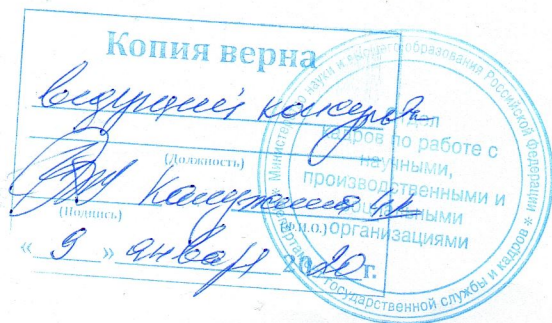 Копия верна
ведущий консультант
(Должность)
(Подпись)
(Ф.И.О.)
« 9 » января 2020 г.
Министерство науки и высшего образования Российской Федерации *
Департамент государственной службы и кадров *
Отдел
кадров по работе с
научными,
производственными и
организациями